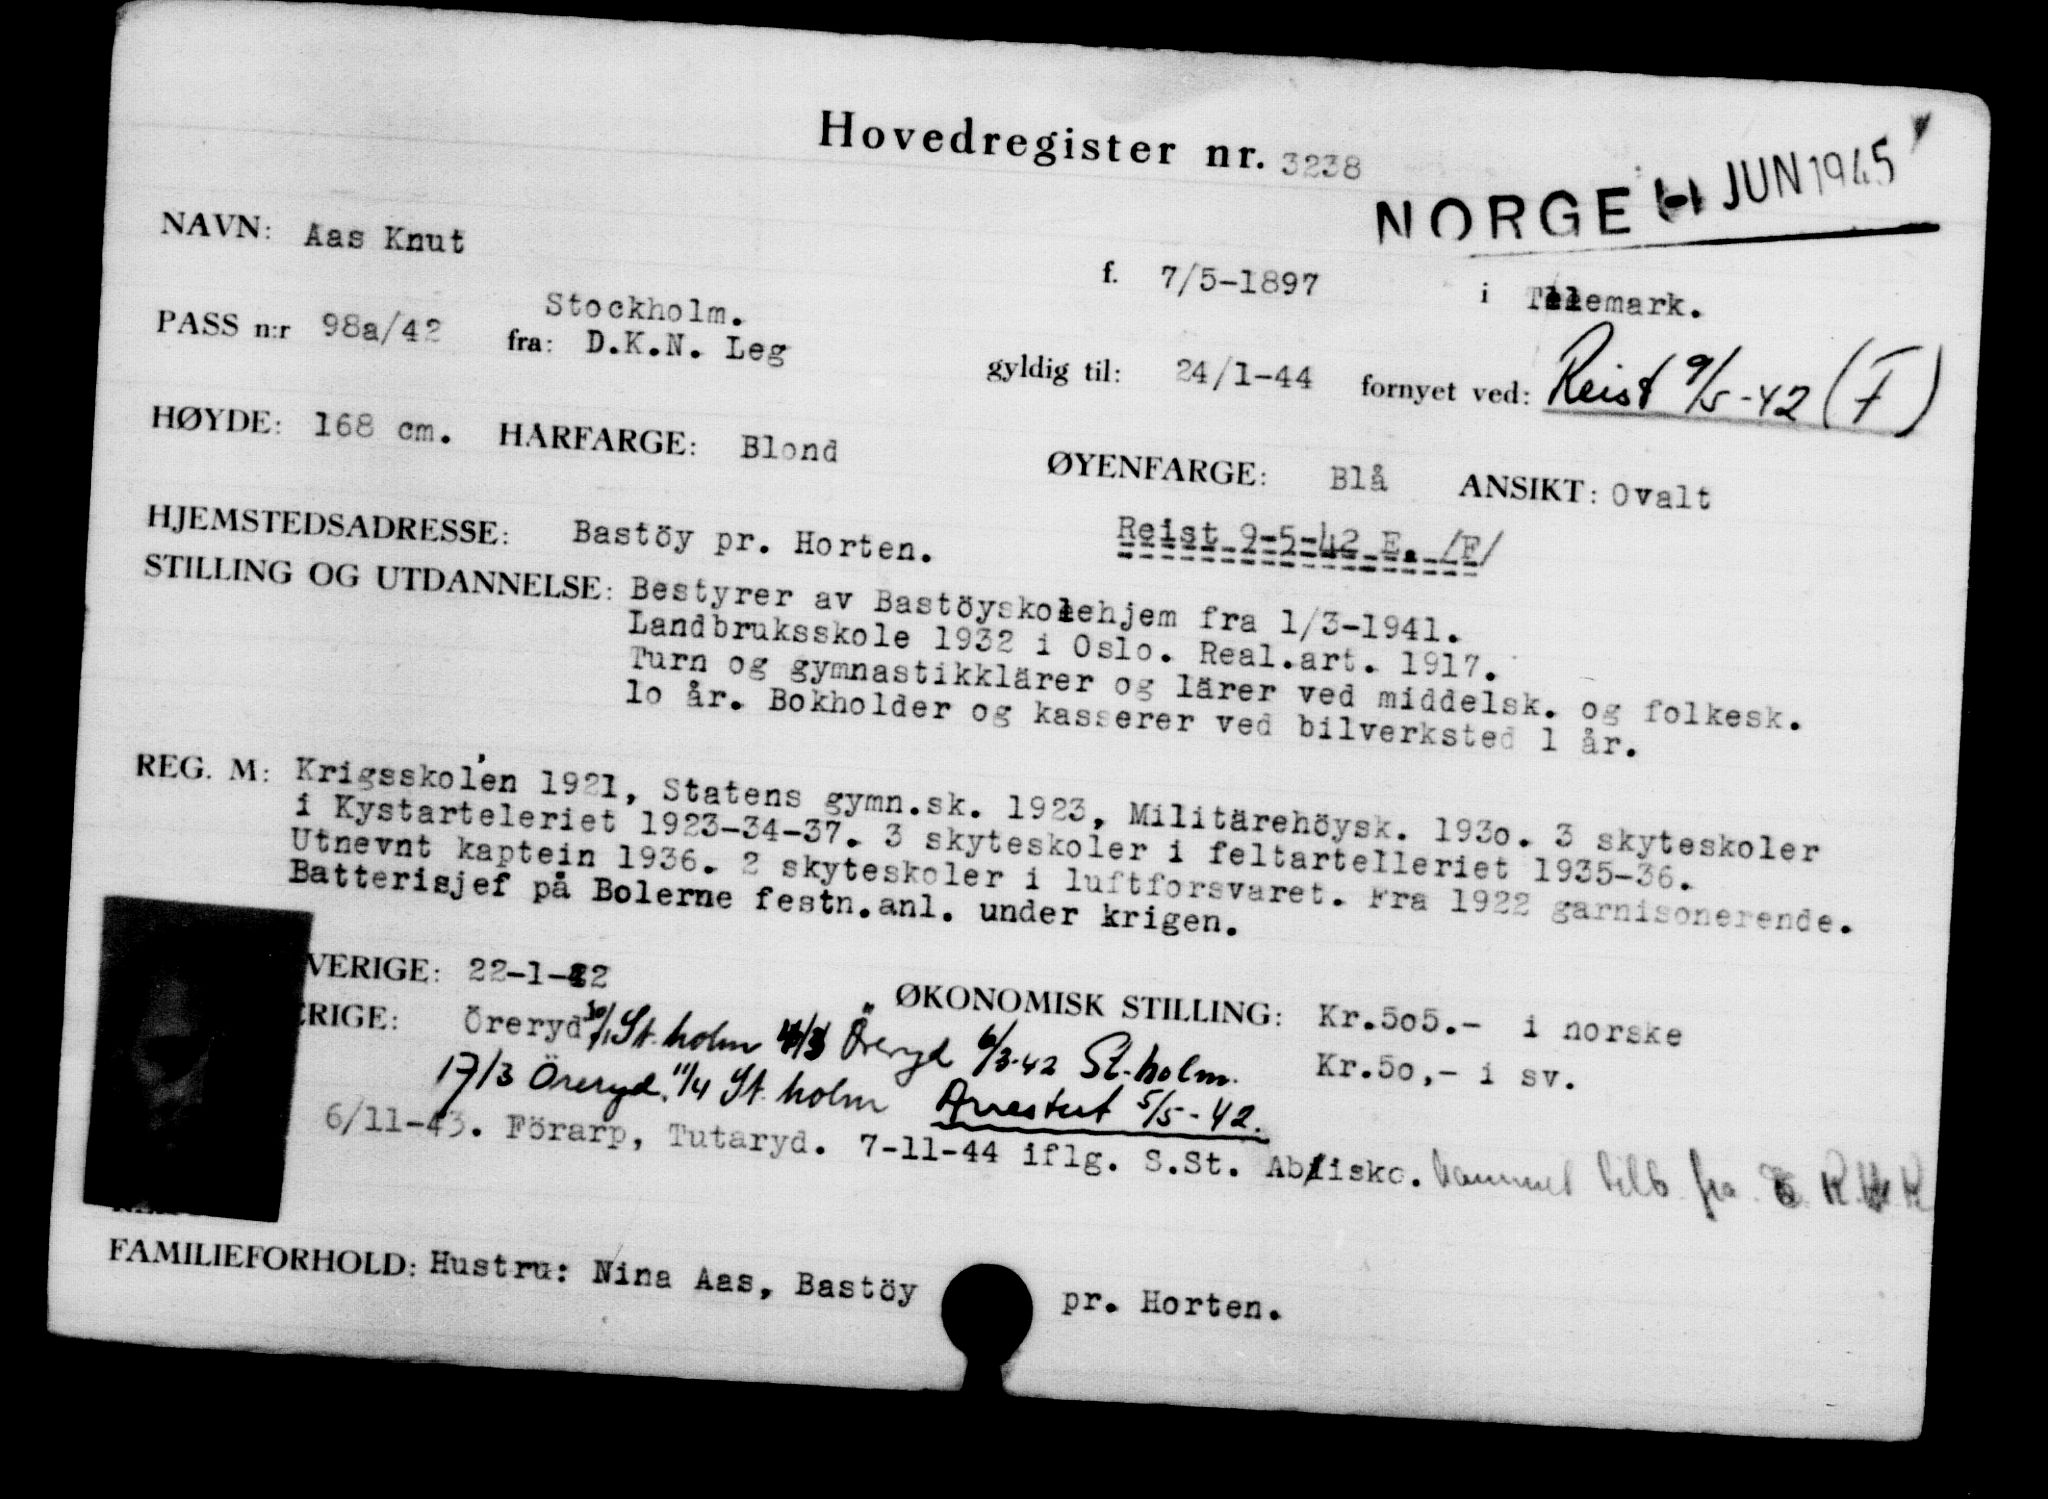 Hovedregister nr. 3238
NORGE JUN 1945
NAVN: Aas Knut f. 7/5-1897 i Telemark.
PASS n:r 98a/42 fra: Stockholm. D.K.N. Leg gyldig til: 24/1-44 fornyet ved: Reist 9/5-42 (F)
HØYDE: 168 cm. HÅRFARGE: Blond ØYENFARGE: Blå ANSIKT: Ovalt
HJEMSTEDSADRESSE: Bastöy pr. Horten. Reist 9-5-42 E. /F/
STILLING OG UTDANNELSE: Bestyrer av Bastöyskolehjem fra 1/3-1941.
Landbruksskole 1932 i Oslo. Real.art. 1917.
Turn og gymnastikklärer og lärer ved middelsk. og folkesk.
lo år. Bokholder og kasserer ved bilverksted 1 år.
REG. M: Krigsskolen 1921, Statens gymn.sk. 1923, Militärehöysk. 193o. 3 skyteskoler
i Kystarteleriet 1923-34-37. 3 skyteskoler i feltartelleriet 1935-36.
Utnevnt kaptein 1936. 2 skyteskoler i luftforsvaret. Fra 1922 garnisonerende.
Batterisjef på Bolerne festn.anl. under krigen.
VERIGE: 22-1-42 ØKONOMISK STILLING: Kr.5o5.- i norske
ERIGE: Öreryd 30/1 St.holm 4/3 Öreryd 6/3-42 St.holm. Kr.5o,- i sv.
17/3 Öreryd. 11/4 St.holm Arrestert 5/5-42.
6/11-43. Förarp, Tutaryd. 7-11-44 iflg. S.St. Abisko. kommet tilb fra
FAMILIEFORHOLD: Hustru: Nina Aas, Bastöy pr. Horten.